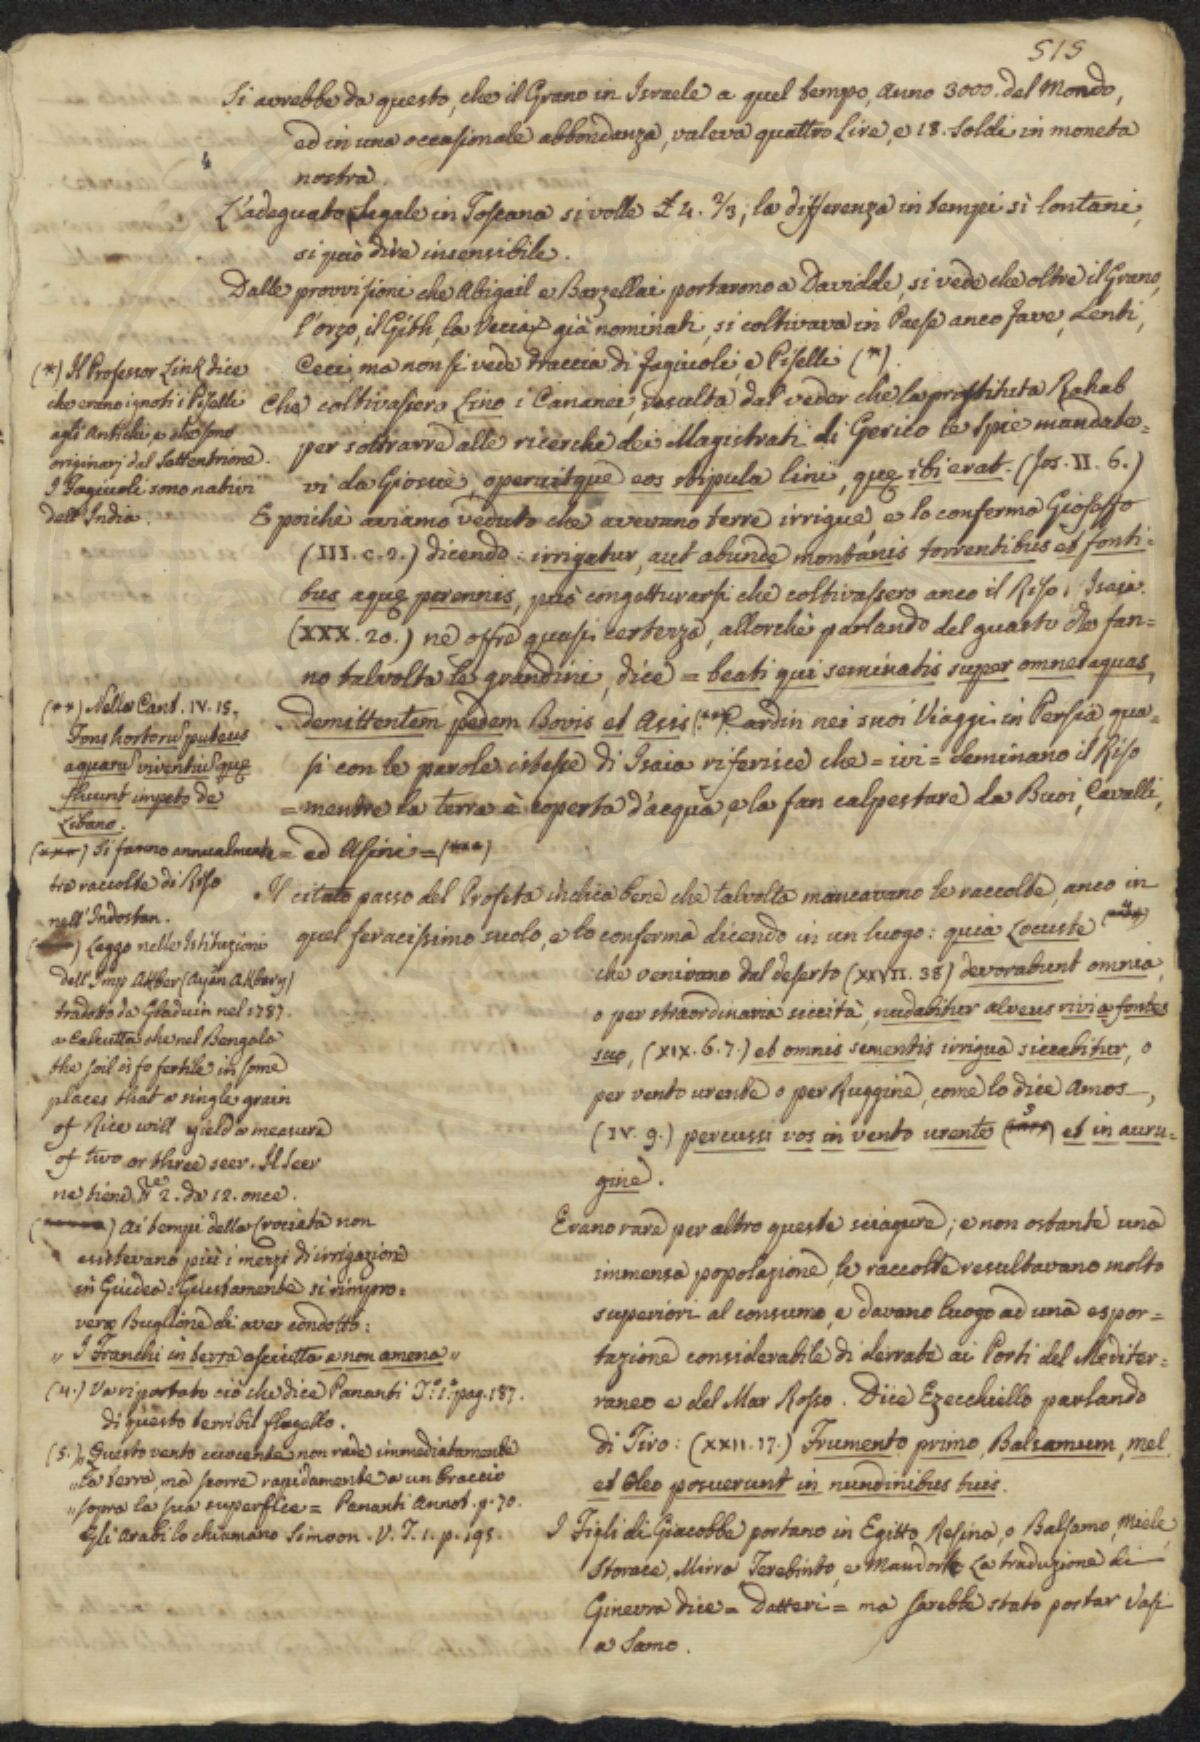 515
Si avrebbe da questo, che il Grano in Israele a quel tempo, Anno 3000. del Mondo,
ed in una occasionale abbondanza, valeva quattro Lire, e 18. Soldi in moneta
nostra.
L'adeguato legale in Toscana si volle £ 4. 2/3; la differenza in tempi sì lontani,
si può dire insensibile.
Dalle provvisioni che Abigail e Barzellai portarono a Davidde, si vede che oltre il Grano,
l'orzo, il Gith, la Veccia già nominati, si coltivava in Paese anco Fave, Lenti,
Ceci, ma non si vede traccia di Fagiuoli, e Piselli (*).
Che coltivassero Lino i Cananei, resulta dal veder che la prostituta Rahab
per sottrarre alle ricerche dei Magistrati di Gerico le Spie mandate=
vi da Giosuè, operuitque eos stipula lini, quę ibi erat. (Jos. II. 6.)
E poichè aviamo veduto che avevano terre irrigue, e lo conferma Gioseffo
(III. c. 2.) dicendo: irrigatur, aut abunde montanis torrentibus et fonti=
bus aquę perennis, può congetturarsi che coltivassero anco il Riso. Isaia
(XXX. 20.) ne offre quasi certezza, allorchè parlando del guasto che fan=
no talvolta le grandini, dice = beati qui seminatis super omnes aquas,
demittentem pedem Bovis et Asis (**). Cardin nei suoi Viaggi in Persia, qua=
si con le parole istesse di Isaia riferisce che = ivi = seminano il Riso
= mentre la terra è coperta d'acqua, e la fan calpestare da Buoi, Cavalli,
= ed Asini = (***)
Il citato passo del Profeta indica bene che talvolta mancavano le raccolte, anco in
quel feracissimo suolo, e lo conferma dicendo in un luogo: quia Locuste (4)
che venivano dal deserto (XXVII. 38) devorabunt omnia,
o per straordinaria siccità, nudabitur alveus rivi a fonte
suo, (XIX. 6. 7.) et omnis sementis irrigua siccabitur, o
per vento urente o per Ruggine, come lo dice Amos,
(IV. 9.) percussi vos in vento urente (5) et in auru=
gine.
Erano rare per altro queste sciagure; e non ostante una
immensa popolazione, le raccolte resultavano molto
superiori al consumo, e davano luogo ad una espor=
tazione considerabile di derrate ai Porti del Mediter=
raneo e del Mar Rosso. Dice Ezecchiello parlando
di Tiro: (XXII. 17.) Frumento primo, Balsamum, mel
et Oleo posuerunt in nundinibus tuis.
I Figli di Giacobbe portano in Egitto, Resina, o Balsamo, Miele,
Storace, Mirra, Terebinto, e Mandorle. La traduzione di
Ginevra dice = Datteri = ma sarebbe stato portar Vasi
a Samo.
(*) Il Professor Link dice
che erano ignoti i Piselli
agli Antichi e che sono
originarj dal Settentrione.
I Fagiuoli sono nativi
dell'India.
(**) Nella Cant. IV. 15.
Fons hortorũ puteus
aquarũ viventiũ quę
fluunt impeto de
Libano.
(***) Si fanno annualmente
tre raccolte di Riso
nell'Indostan.
Leggo nelle Istituzioni
dell'Imp. Akber (Ayan Akbery)
tradotto da Gladuin nel 1787.
a Calcutta che nel Bengala
the soil is so fertile in some
places that a single grain
of Rice will yield a measure
of two or three seer. Il Seer
ne tiene 2. da 12. once.
Ai tempi della Crociata non
esistevano più i mezzi di irrigazione
in Giudea. Giustamente si rimpro=
vera Buglione di aver condotto:
„ I Franchi in terra asciutta e non amena „
(4.) Va riportato ciò che dice Pananti T.º 1.º pag. 187.
di questo terribil flagello.
(5.) „ Questo vento cuocente non rade immediatamente
„ la terra, ma scorre rapidamente a un braccio
„ sopra la sua superficie = Pananti Annot. p. 70.
Gli Arabi lo chiamano Simoon. V. T. 1. p. 195.